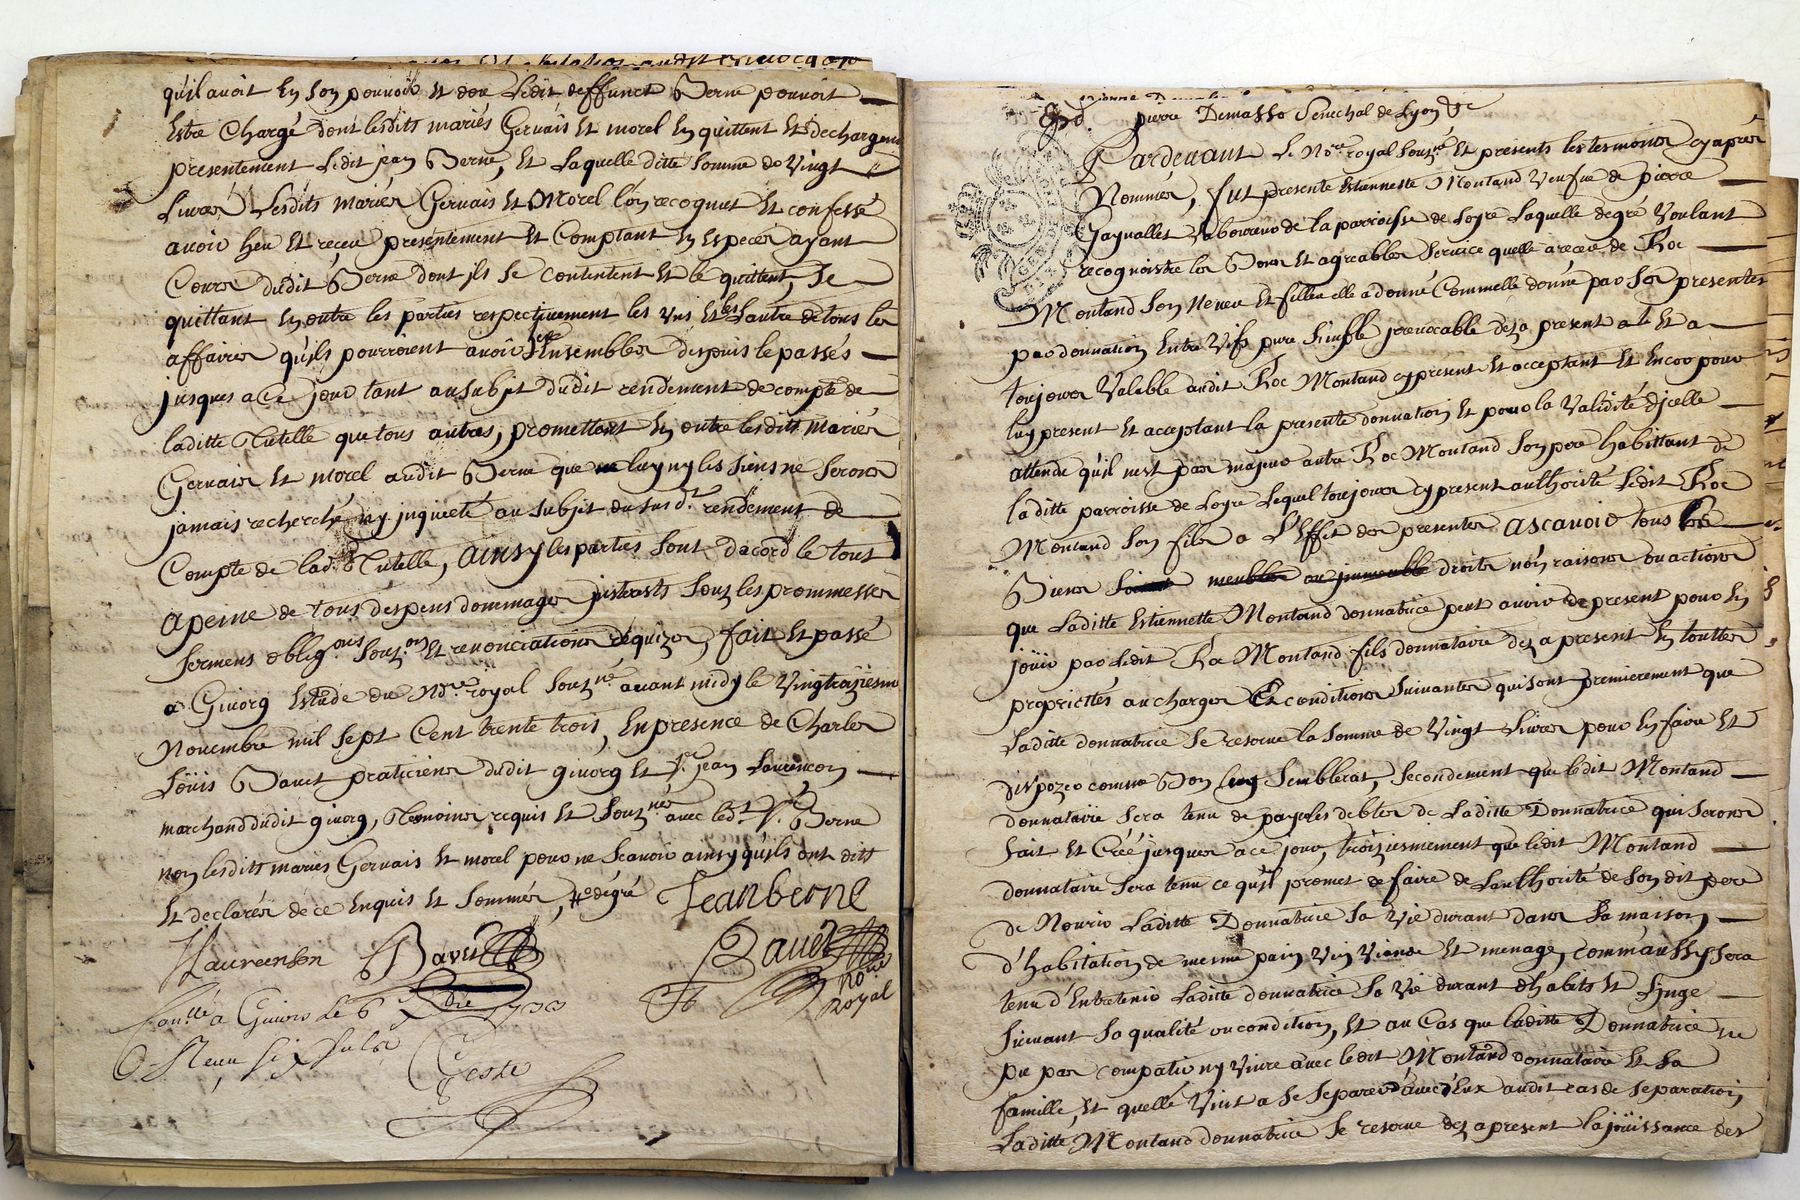 qu'il avoit En son pouvoir Et dont Ledit deffunct Berne pouvoit
Estre Chargé dont lesdits mariés Gervais Et morel En quittent Et dechargent
presentement Ledit jean Berne, Et Laquelle ditte somme de Vingt
Livres Lesdits mariés Gervais Et Morel l'on recogneu Et confessé
avoir heu Et receu presentement Et Comptant En Especes ayant
Cours dudit Berne dont ils se contentent Et le quittent, Se
quittant En outre les parties respectivement les Uns Et les L'autre de tous les
affaires qu'ils pourroient avoir Heu Ensembles despuis le passés
jusques a Ce jour tant au subjet dudit rendement de compte de
laditte Tutelle que tous autres, promettant En outre lesdits Mariés
Gervais Et morel audit Berne que luy ny les siens ne serons
jamais recherché ny jnquieté au subjet du susd.t rendement de
Compte de lad. Tutelle, Ainsy les parties sont d'acord le tout
A peine de tous despens dommages jnterests Souz les prommesses
sermens oblig.ons Souz.ons Et renonciations requizes, fait Et passé
a Givorg Estude du No.re royal Souz.né avant midy le Vingt
Novembre mil sept Cent trente trois, En presence de Charles
Loüis Bavet praticiens dudit givorg Et S.r jean Laurencon
marchand dudit givorg, Temoins requis Et Souz.nés avec led.t S.r Berne
non lesdits mariés Gervais Et morel pour ne scavoir ainsy qu'ils ont dits
Et declarés de ce Enquis Et sommés, dégré Jean berne
Laurenson Bavet Bavet
no.re
Royal
a Givors Le 6 1733
Neuf
Coste
Pierre Demasso Senechal de Lyon &c
Pardevant Le No.re royal Souz.né Et presents les tesmoins cy apres
Nommés, fut presente Estiennette Montand Veufve de pierre
Gaynallet Laboureur de la parroisse de Loyre Laquelle de gré Voulant
recognoistre les Bons Et agreables Service quelle a receu de Roc
Montand son Neveu Et filleu elle a donné Comme elle donne par Ses presentes
par donnation Entre Vifs pure Simple jrrevocable dez a present a Et a
toujours Valable audit Roc Montand cy present Et acceptant Et Encor pour
luy present Et acceptant la presente donnation Et pour la Validité d'jcelle
attendu qu'il n'est pas majeur autre Roc Montand son pere habittant de
laditte parroisse de Loyre Lequel toujours cy present authorite Ledit Roc
Montand son fils a L'Effet des presentes Ascavoir tous les
Biens meubles ou jmmeuble droits nons raisons ou actions
que Laditte Estiennette Montand donnatrice peut avoir de present pour En
joüir par Ledit Montand fils donnataire dez a present En touttes
proprietés au charges Et conditions Suivantes qui sont premierement que
Laditte donnatrice Se reserve la Somme de Vingt Livres pour En faire Et
dispozer comme Bon luy Semblerat, Secondement que ledit Montand
donnataire sera tenu de payer les debtes de Laditte Donnatrice qui seront
fait Et Créé jusques a ce jour, troiziesmement que ledit Montand
donnataire sera tenu ce qu'il promet de faire de L'authorité de son dit pere
de Nourir Laditte Donnatrice Sa Vie durant dans Sa maison
d'habitation de mesme pain Vin Viande Et menage, comm'aussy sera
tenu d'Entretenir Laditte donnatrice Sa Vie durant d'habits Et Linge
suivant Sa qualité ou condition, Et au Cas que laditte Donnatrice ne
put pas compatir ny Vivre avec ledit Montand donnataire Et Sa
famille, Et quelle Vint a Se Separer d'avec Eux audit cas de Separation
Laditte Montand donnatrice Se reserve dez a present la joüissance des